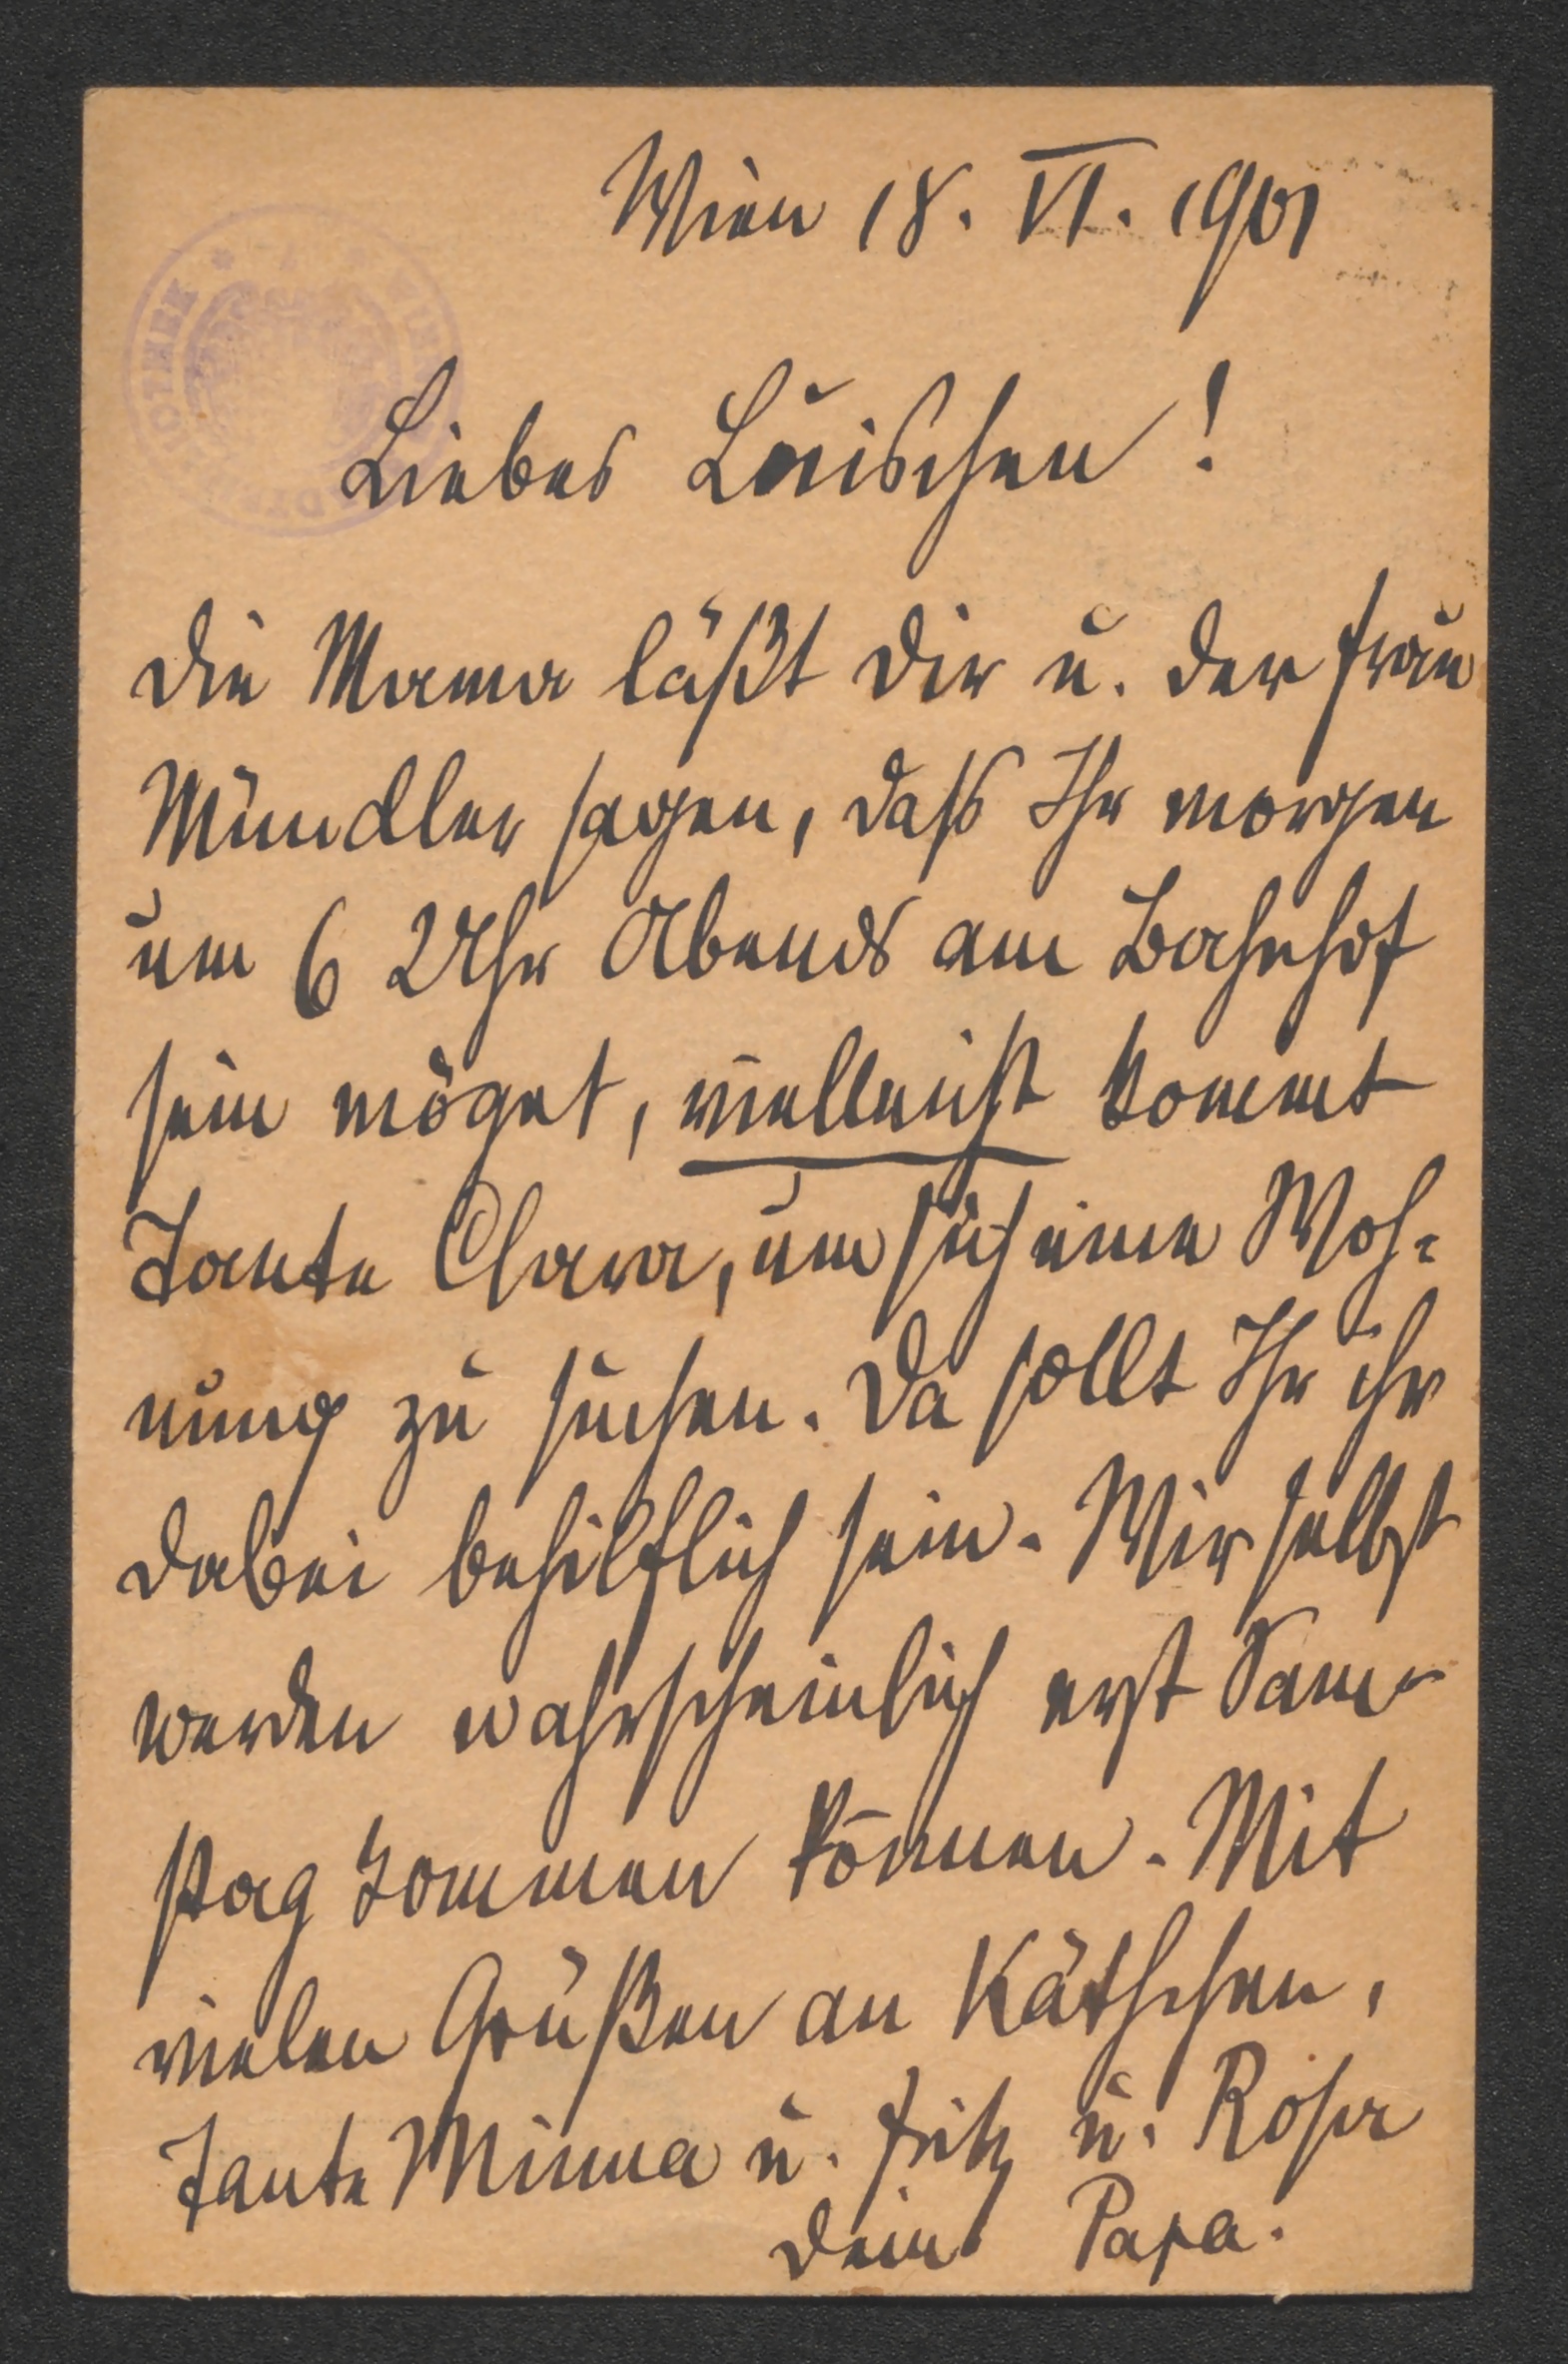 Wien 18. VI. 1901
Liebes Luischen!
die Mama läßt Dir u. der Frau
Mündler sagen, daß Ihr morgen
um 6 Uhr Abends am Bahnhof
sein möget, vielleicht kommt
Tante Clara, um sich eine Woh-
nung zu suchen. Da sollt Ihr ihr
dabei behilflich sein. Wir selbst
werden wahrscheinlich erst Sam-
stag kommen können. Mit
vielen Grüßen an Käthchen,
Tante Minna u. Fritz u. Rosa
Dein Papa.